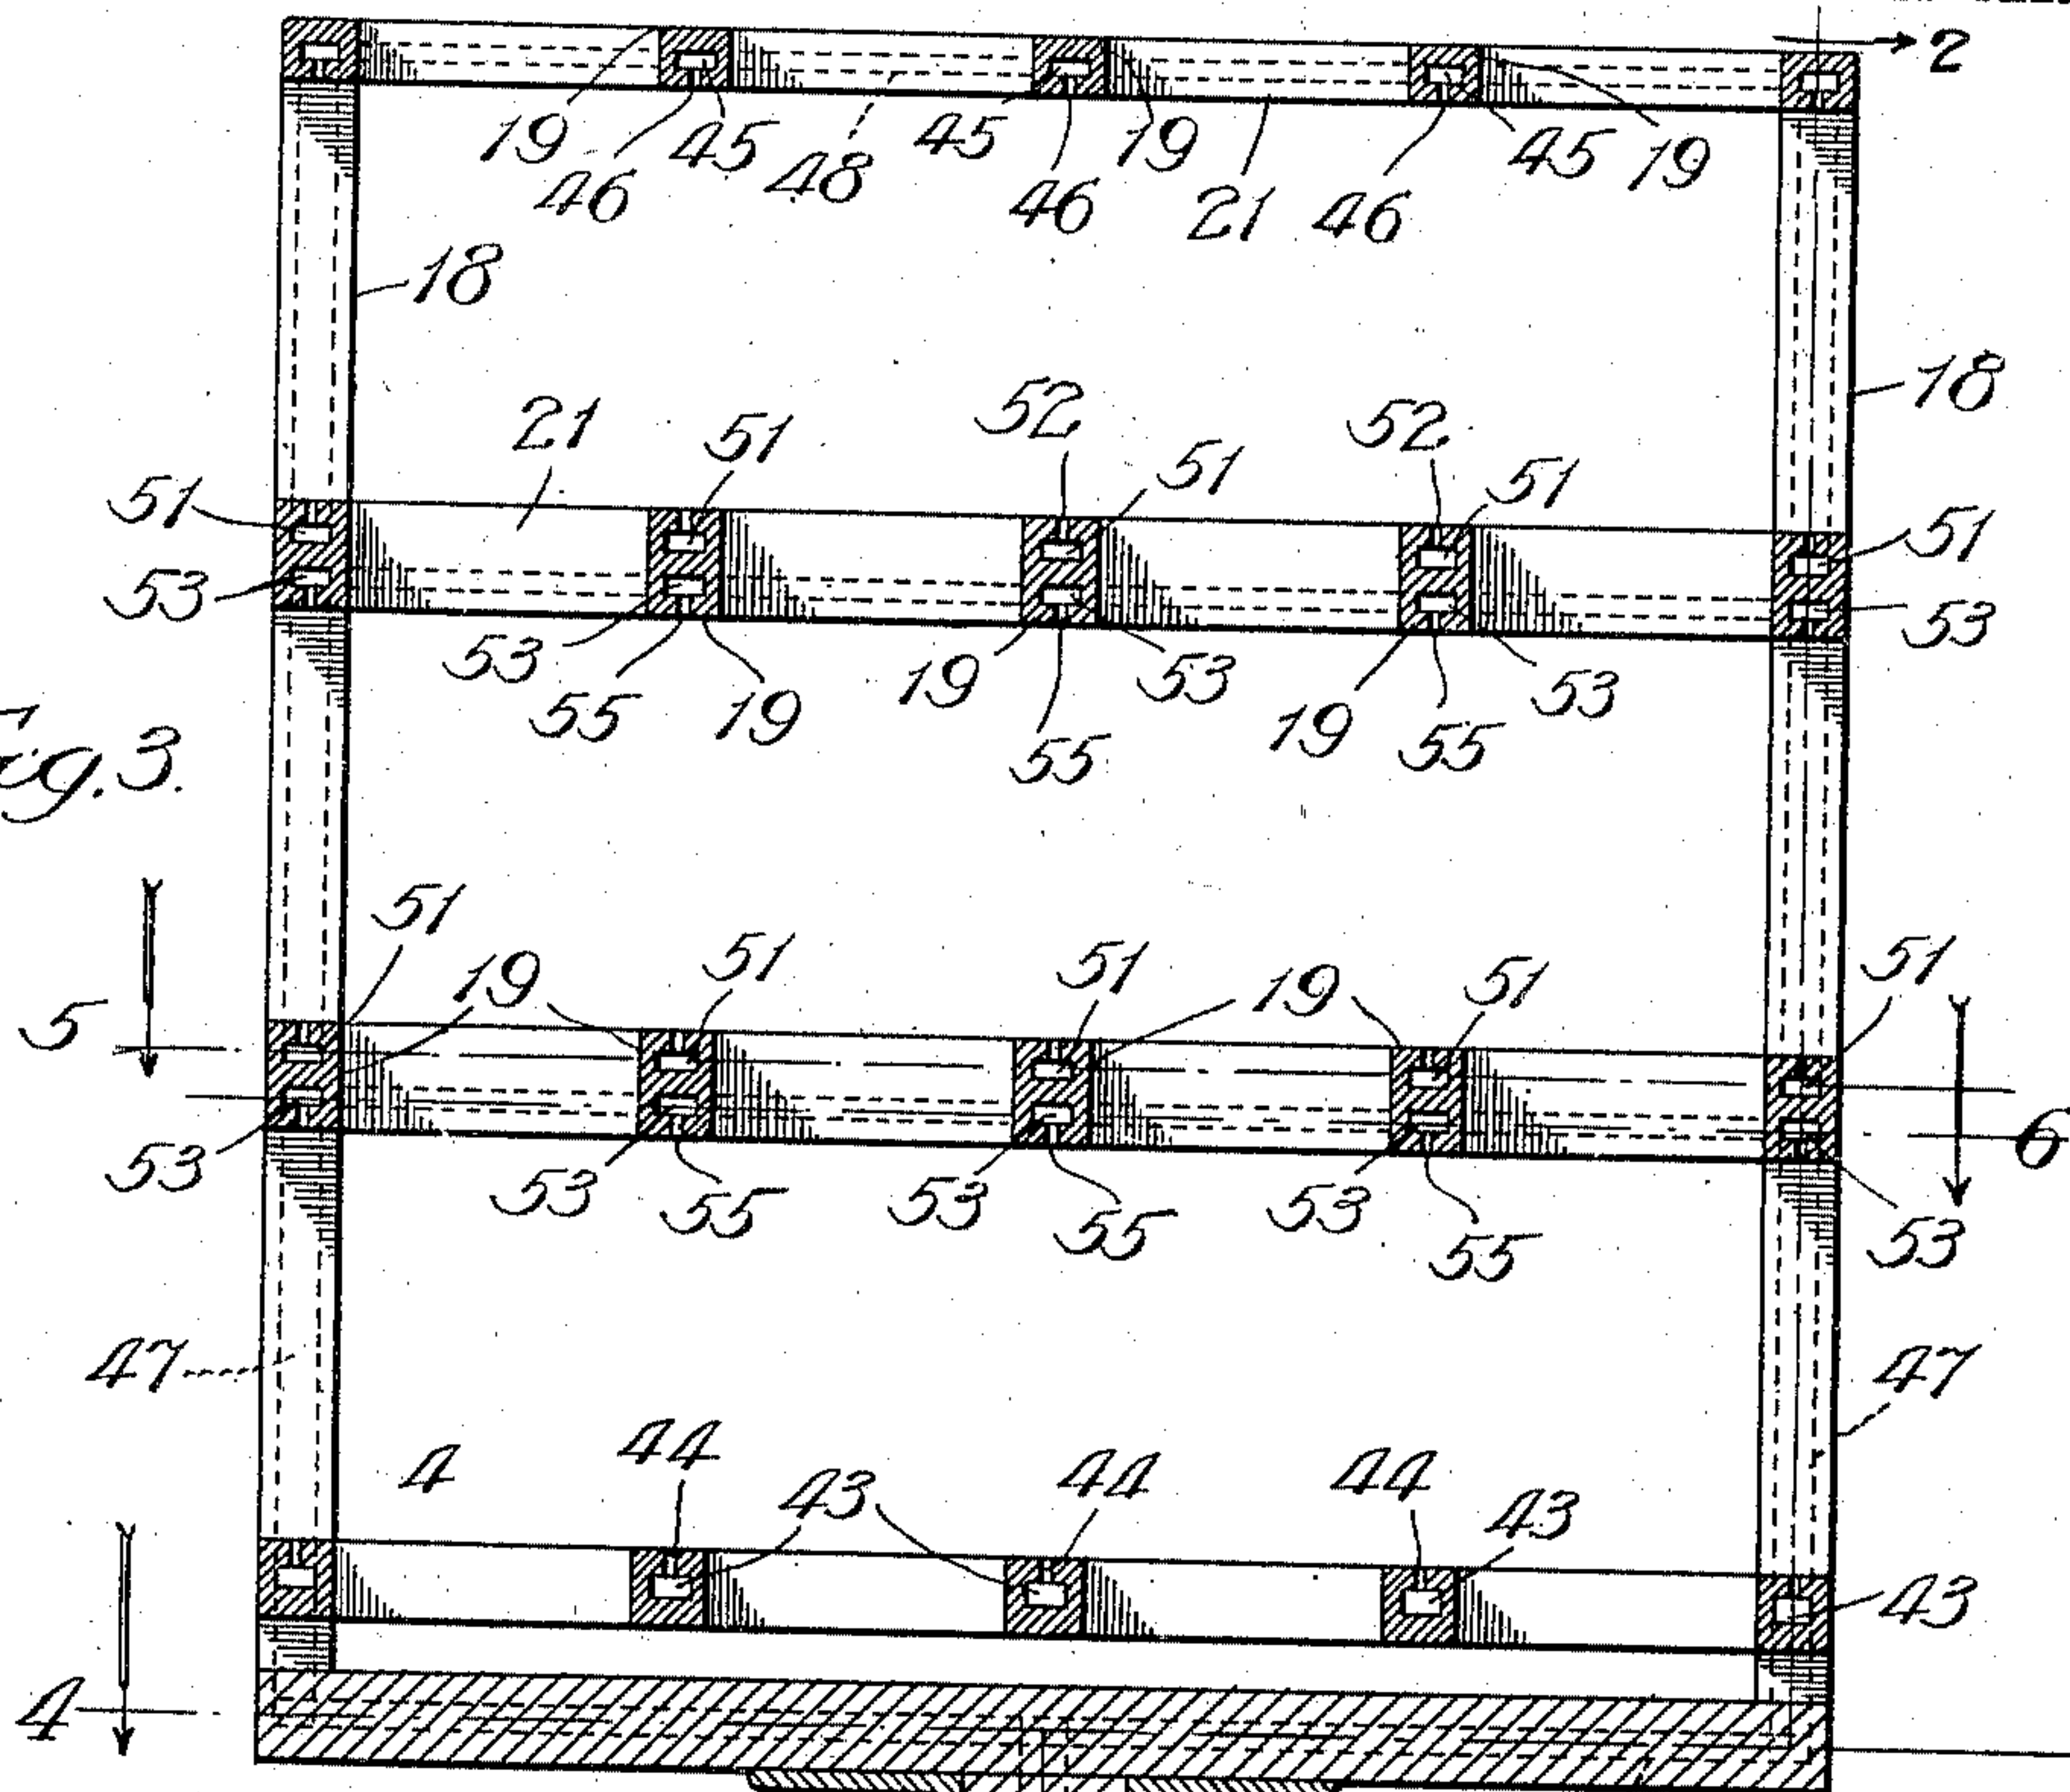 2
19 45 48 45 19 45 19
46 46 21 46
18
18
21 51 52 51 52 51
51 51
53 53
53 19 53 19 53
55 19 55 55
Fig. 3.
51 19 51 51 19 51 51
5
6
53 53 55 53 55 53 55 53
47 47
4 44 43 44 44 43
43
4